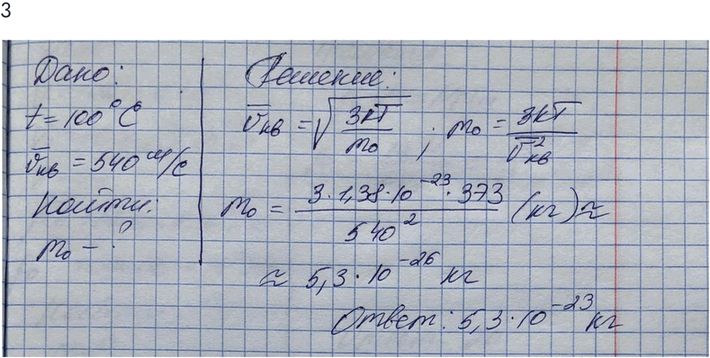 3
Дано:
t = 100°C
v̅кв = 540 м/с
Найти:
m₀ – ?
Решение:
v̅кв = √(3кТ/m₀) ; m₀ = 3кТ/v̅²кв
m₀ = 3·1,38·10⁻²³·373/540² (кг) ≈
≈ 5,3·10⁻²⁶ кг
Ответ: 5,3·10⁻²³ кг